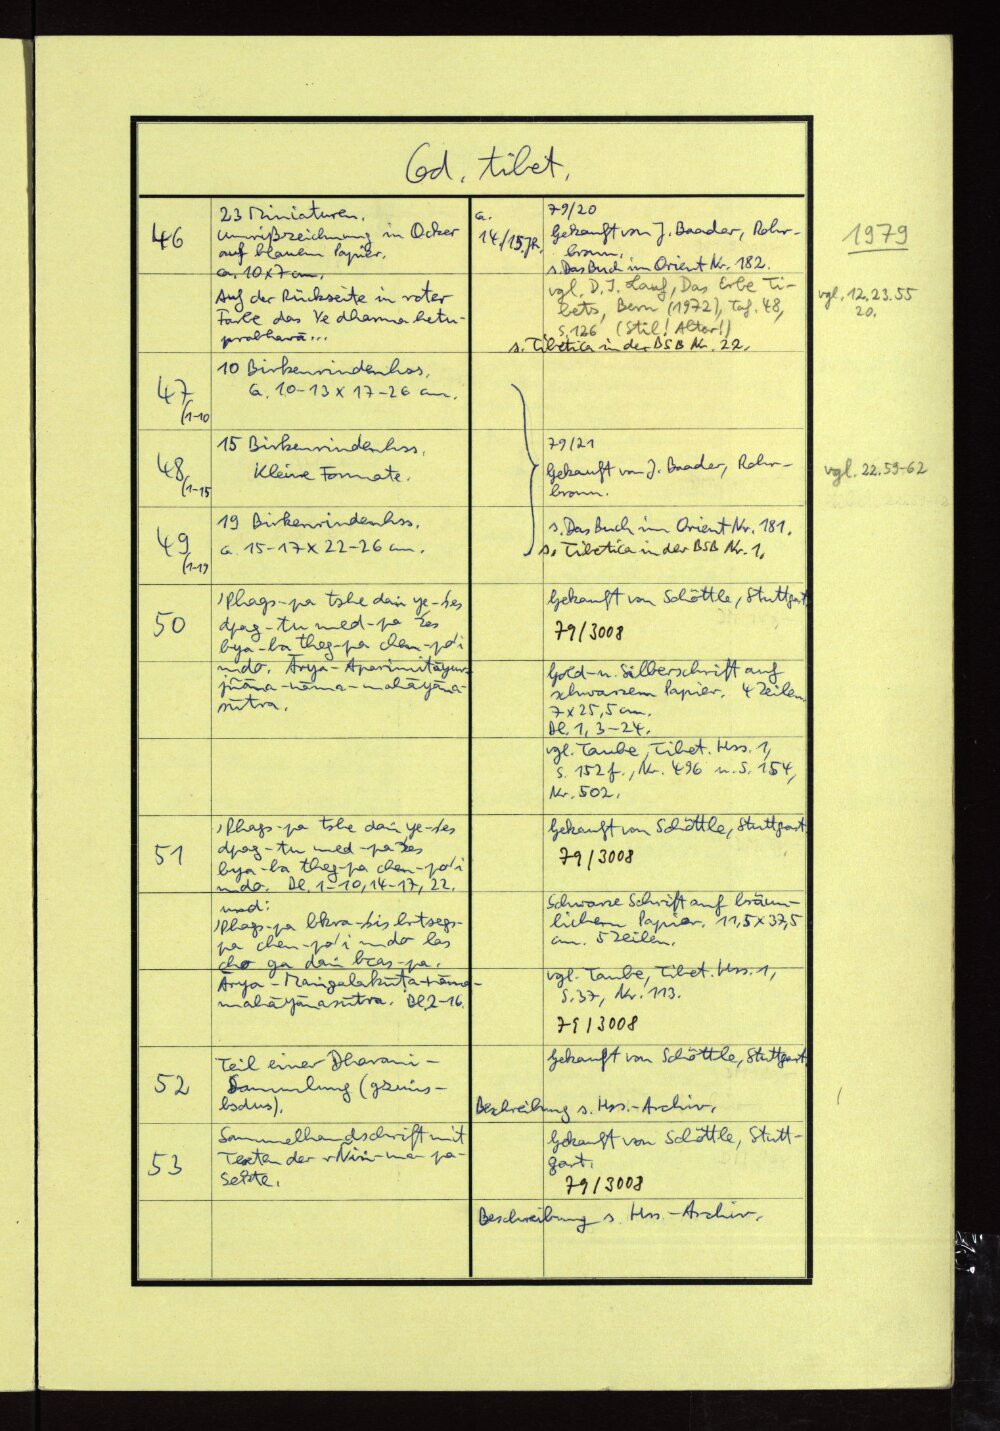 Cod. tibet.
46
23 Miniaturen.
Umrißzeichnung in Ocker
auf blauem Papier.
ca. 10x7 cm.
Auf der Rückseite in roter
Farbe das Ye dharma hetu-
prabhavā...
ca.
14./15. Jh.
79/20
Gekauft von J. Baader, Rohr-
bronn.
s. Das Buch im Orient Nr. 182.
vgl. D. I. Lauf, Das Erbe Ti-
bets, Bern (1972), Taf. 48,
S. 126 (Stil! Alter!)
s. Tibetica in der BSB Nr. 22.
1979
vgl. 12.23.55
20.
47
(1-10
10 Birkenrindenhss.
ca. 10-13 x 17-26 cm.
48
(1-15
15 Birkenrindenhss.
Kleine Formate.
79/21
Gekauft von J. Baader, Rohr-
bronn.
vgl. 22.59-62
49
(1-19
19 Birkenrindenhss.
ca. 15-17 x 22-26 cm.
s. Das Buch im Orient Nr. 181.
s. Tibetica in der BSB Nr. 1.
50
'Phags-pa tshe daṅ ye-śes
dpag-tu med-pa źes
bya-ba theg-pa chen-po'i
mdo. Ārya-Aparimitāyur-
jñāna-nāma-mahāyāna-
sūtra.
Gekauft von Schöttle, Stuttgart
79/3008
Gold- u. Silberschrift auf
schwarzem Papier. 4 Zeilen.
7 x 25,5 cm.
Bl. 1, 3-24.
vgl. Taube, Tibet. Hss. 1,
S. 152 f., Nr. 496 u. S. 154,
Nr. 502.
51
'Phags-pa tshe daṅ ye-śes
dpag-tu med-pa źes
bya-ba theg-pa chen-po'i
mdo. Bl. 1-10, 14-17, 22.
und:
'Phags-pa bkra-śis brtsegs-
pa chen-po'i mdo las
cho ga daṅ bcas-pa.
Ārya-Maṅgalakūṭa-nāma-
mahāyānasūtra. Bl. 2-16.
Gekauft von Schöttle, Stuttgart
79/3008
Schwarze Schrift auf bräun-
lichem Papier. 11,5 x 37,5
cm. 5 Zeilen.
vgl. Taube, Tibet. Hss. 1,
S. 37, Nr. 113.
79/3008
52
Teil einer Dharani-
Sammlung (gzuṅs-
bsdus).
Gekauft von Schöttle, Stuttgart
Beschreibung s. Hss.-Archiv.
53
Sammelhandschrift mit
Texten der rÑiṅ-ma-pa-
Sekte.
Gekauft von Schöttle, Stutt-
gart.
79/3008
Beschreibung s. Hss.-Archiv.